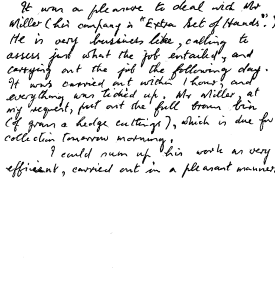 It was a pleasure to deal with Mr
Miller (his company is "Extra Set of Hands".)
He is very bussiness like, calling to
assess just what the job entailed, and
carrying out the job the following day.
It was carried out within 1 hour, and
everything was tidied up. Mr Miller, at
my request, put out the full brown bin
(of grass & hedge cuttings), which is due for
collection tomorrow morning.
I could sum up his work as very
efficient, carried out in a pleasant manner.